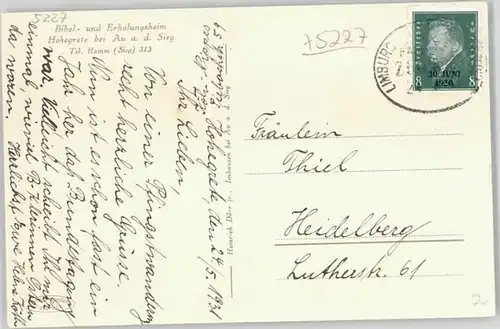 5227
Bibel- und Erholungsheim
Hohegrete bei Au a. d. Sieg
Tel. Hamm (Sieg) 313
+5227
LIMBURG
30. JUNI
1930
8 8
Hohegrete, den 24/5. 1931
Ihr Lieben,
Von einer Pfingstwanderung
recht herzliche Grüsse.
Nun ist es schon fast ein
Jahr her, daß Bundestagung
war. Vielleicht schreibt Ihr mir
einmal, wieviel B.
da waren. Herzlichst
Heinrich Dörr jr., Imhausen bei Au a. d. Sieg
Fräulein
Thiel
Heidelberg
Lutherstr. 61